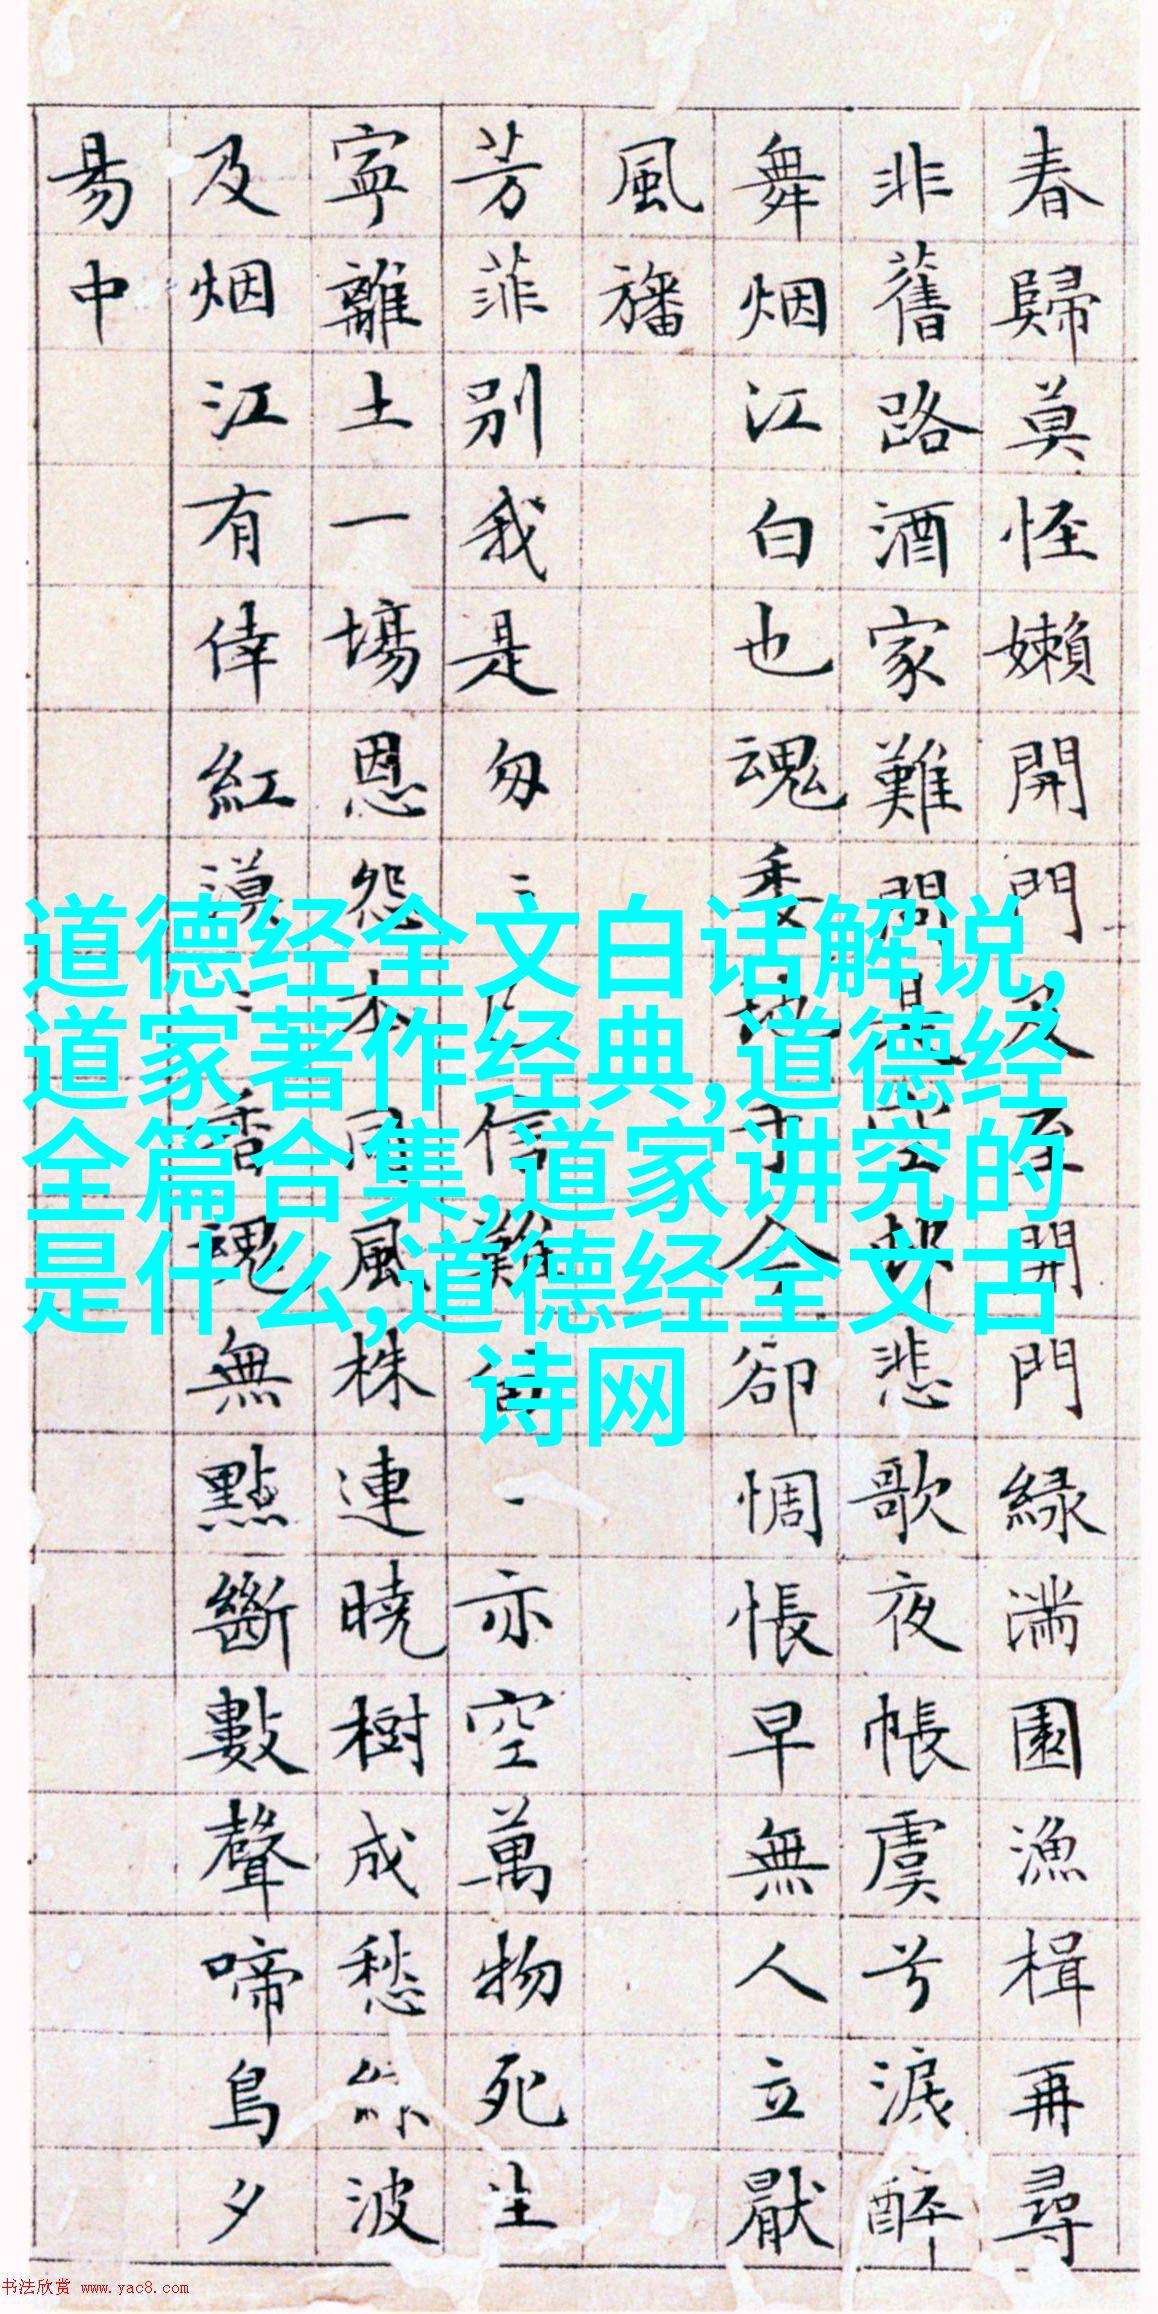 春歸莫怪嬾開門及至開門緑滿園漁楫再尋
非舊路酒家難問是空邨悲歌夜帳虞兮淚醉
舞烟江白也魂委地于今卻惆悵早無人立厭
風旛
芳菲別我是匆〻已信難亦空萬物死生
寧離土一場恩怨本同風株連曉樹成愁波
及烟江有倖紅漠〻香魂無點斷數聲啼鳥夕
昜中
道德经全文白话解说,
道家著作经典,道德经
全篇合集,道家讲究的
是什么,道德经全文古
诗网
书法欣赏 www.yac8.com